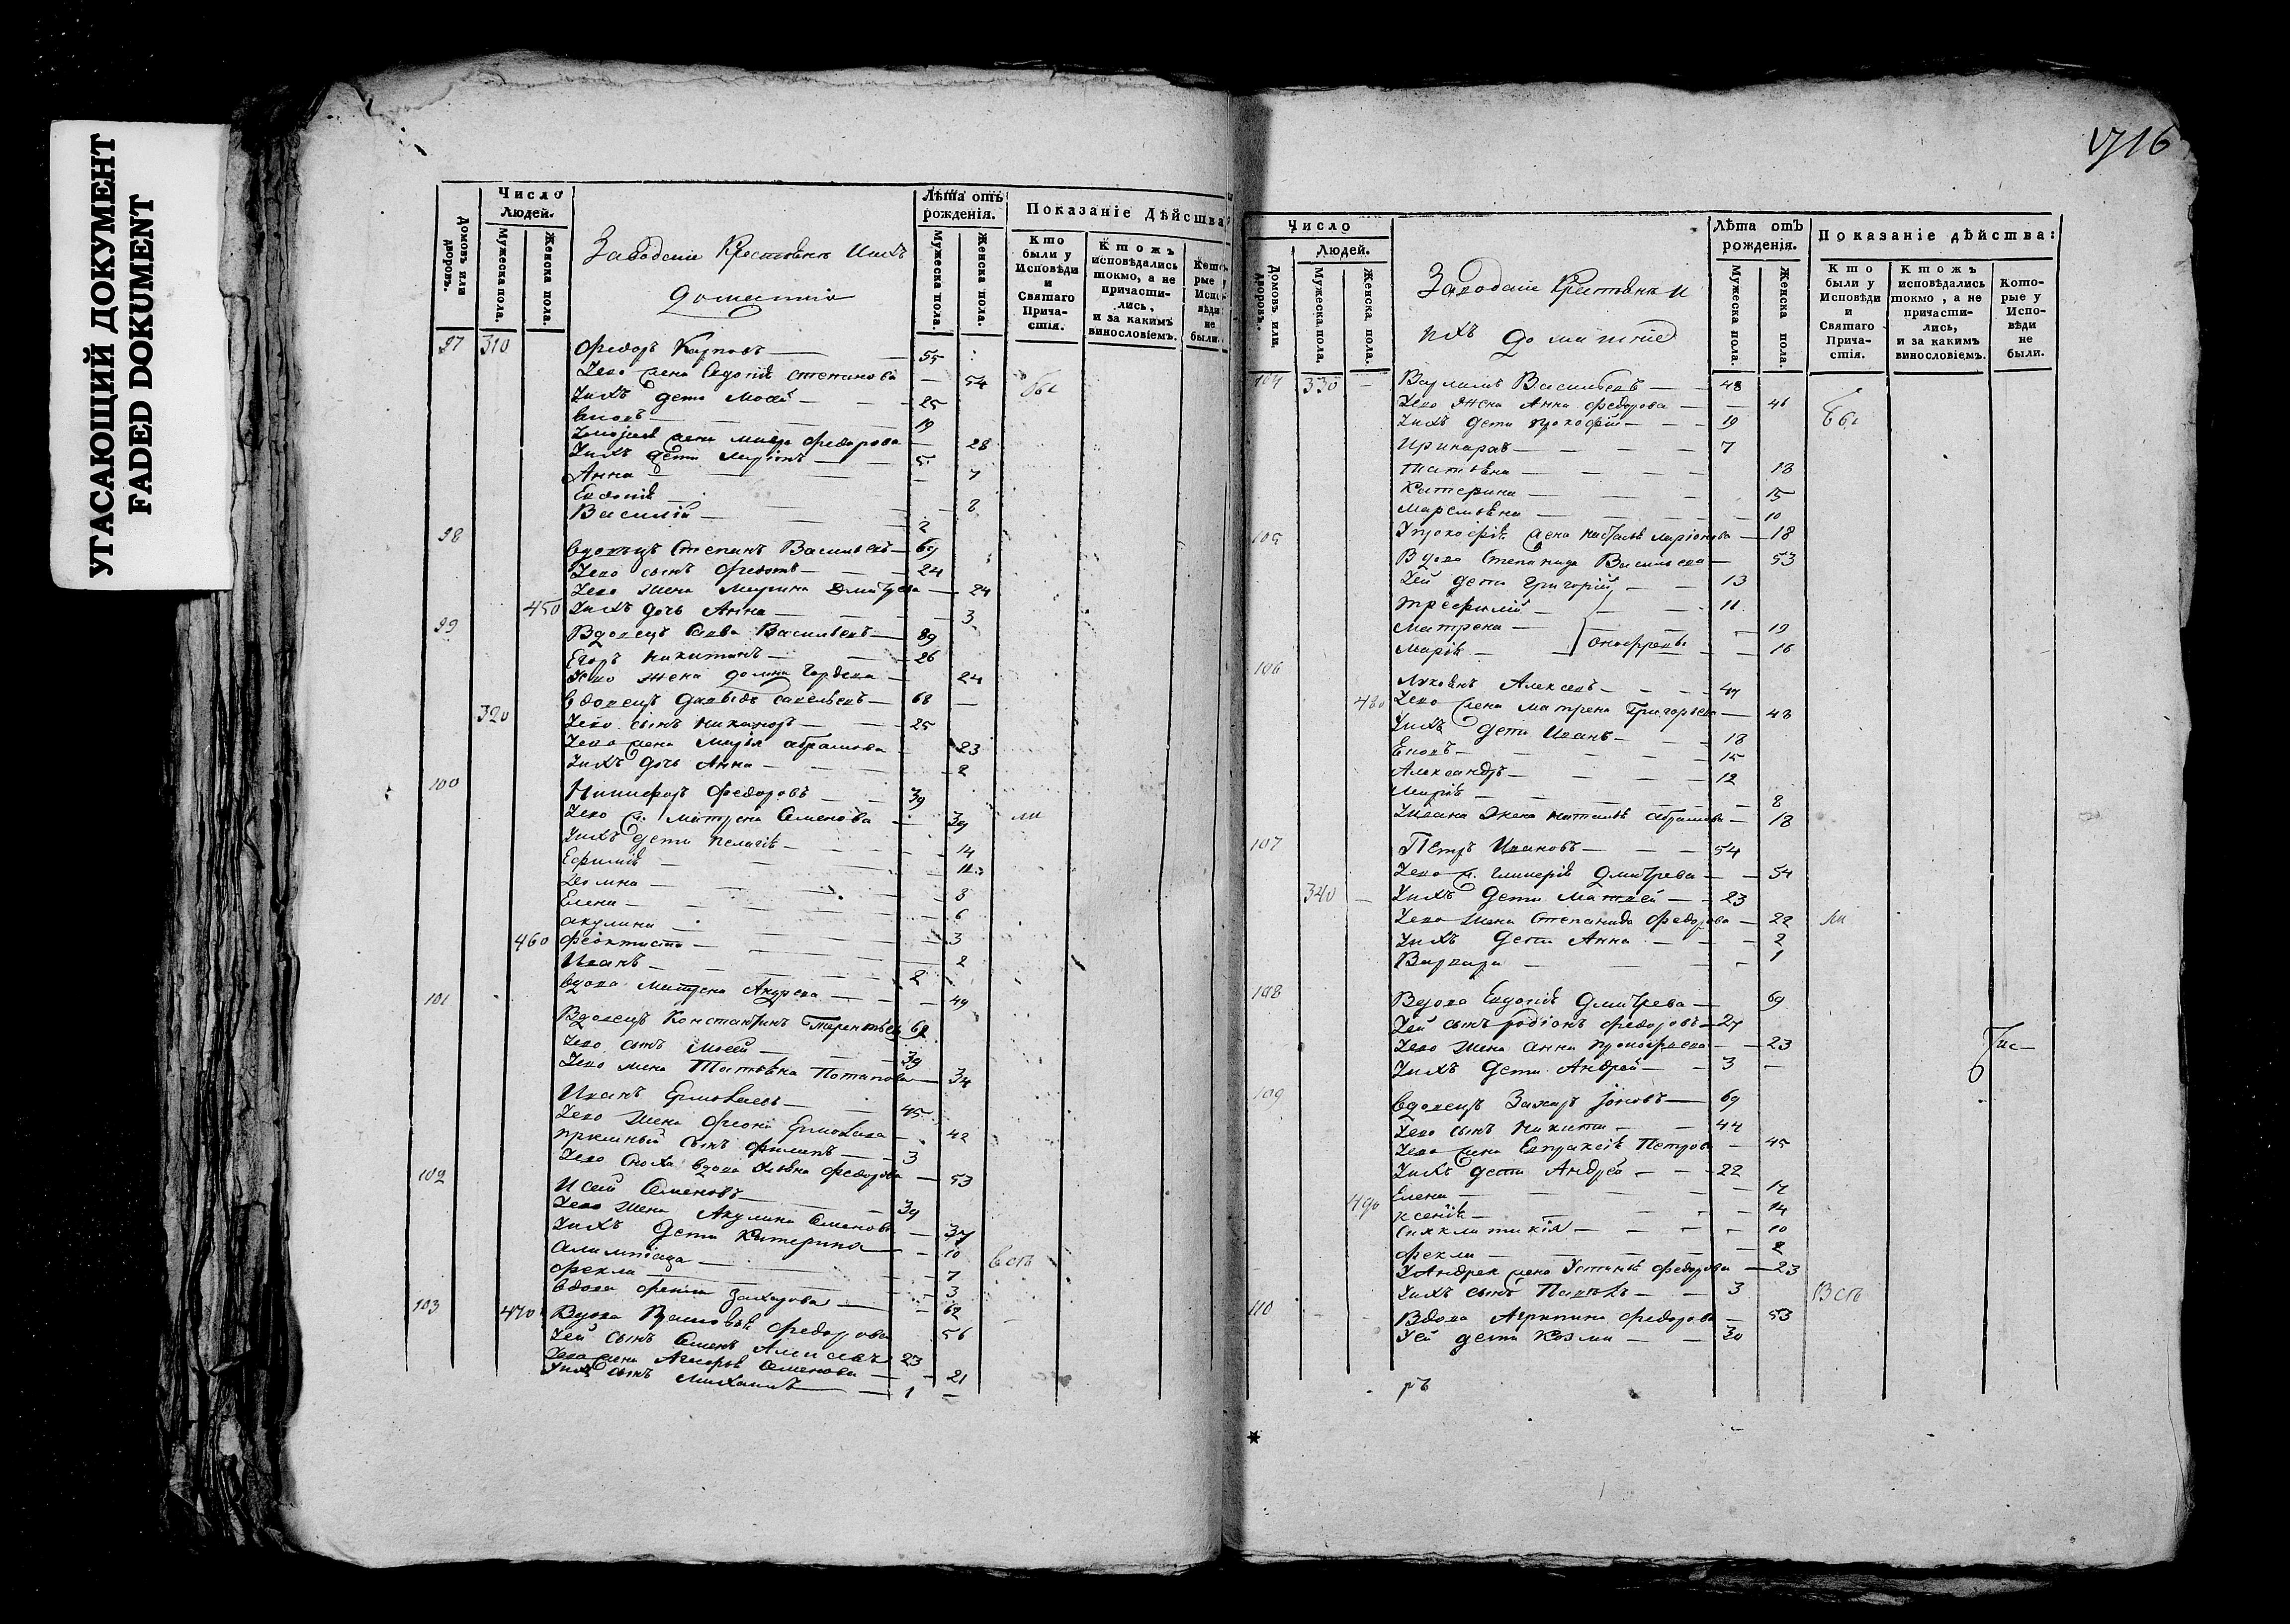 УГАСАЮЩИЙ ДОКУМЕНТ
FADED DOKUMENT
Число
Людей.
Домовъ или дворовъ.
Мужеска пола.
Женска пола.
Заводскіе Крестьяне Ихъ
домашніе
Лѣта отъ рожденія.
Мужеска пола.
Женска пола.
Показаніе Дѣйства
Кто были у Исповѣди и Святаго Причастія.
Ктожъ исповѣдались токмо, а не причастились, и за какимъ винословіемъ.
Которые у Исповѣди не были.
97 310 Федоръ Карповъ — 55
Ево жена Евдокія Степанова — 54 бы
Ихъ дети Мосей — 25
19
жена Федорова — 28
Ихъ дети Ларіонъ — 5
Анна — 7
Евдокія —
Василій — 2
98 Вдовецъ Степанъ Васильевъ — 69
Ево сынъ Федотъ — 24
Ево жена Марина Дмитрева — 24
450 Ихъ дочь Анна — 3
99 Вдовецъ Сава Васильевъ — 89
Егоръ Никитинъ — 26
Ево жена Домна Гордева — 24
Вдовецъ Давыдъ Савельевъ — 68
320 Ево сынъ Никаноръ — 25
Ево жена Марія Абрамова — 23
Ихъ дочь Анна — 2
100 Никифоръ Федоровъ — 39
Ево ж. Матрена Семенова — 39 ли
Ихъ дети Пелагія — 14
Ефимія — 12
Домна — 8
Елена — 6
Акулина — 3
460 Феоктиста — 2
Иванъ — 2
Вдова Матрена Андрева — 49
101 Вдовецъ Константинъ Терентьевъ 62
Ево сынъ Мосей — 39
Ево жена Татьяна Потапова — 34
Иванъ Ермолаевъ — 45
Ево жена Феона Ермолаева — 42
Приемный сынъ Филипъ — 3
Ево сноха вдова Федорова — 53
102 Исай Семеновъ — 39
Ево жена Акулина Семенова — 37
Ихъ дети Катерина — 10 всѣ
Алимпіада — 7
Фекла — 3
Вдова Захарова — 62
103 470 Вдова Федорова 56
Ей сынъ Семенъ 23
Ево жена Семенова — 21
Ихъ сынъ Михаилъ — 1
716
Число
Людей.
Домовъ или дворовъ.
Мужеска пола.
Женска пола.
Заводскіе Крестьяне И
ихъ домашніе
Лѣта отъ рожденія.
Мужеска пола.
Женска пола.
Показаніе дѣйства:
Кто были у Исповѣди и Святаго Причастія.
Ктожъ исповѣдались токмо, а не причастились, и за какимъ винословіемъ.
Которые у Исповѣди не были.
104 330 — Варламъ Васильевъ — 48
Ево Жена Анна Федорова — 46
Ихъ дети Прокофій — 19 бы
7
Татьяна — 18
Катерина — 15
Маремьяна — 10
105 Упрокофія жена Наталья Ларіонова — 18
Вдова Степанида Васильева — 53
Ей дети Григорій — 13
Трефилій — 11
Матрена — 19
Марія — Онофревы — 16
106 Алексевъ — 47
480 Ево жена Матрена Григорьева — 43
Ихъ дети Иванъ — 18
15
Александръ — 12
Марія — 8
Уивана жена Наталья Абрамова — 18
107 Петръ Ивановъ — 54
Ево ж. Гликерія Дмитрева — 54
340 — Ихъ дети Матвей — 23
Ево жена Степанида Федорова — 22 ли
Ихъ дети Анна — 2
Варвара — 1
108 Вдова Евдокія Дмитрева — 69
Ей сынъ Родіонъ Федоровъ — 27
Ево жена Анна Прокофьева — 23
Ихъ дети Андрей — 3
109 Вдовецъ Захаръ Іоновъ — 69
Ево сынъ Никита — 44
Ево жена Евпраксія Петрова — 45
Ихъ дети Андрей — 22
Елена — 17
490 Ксенія — 14
Синклитикія — 10
Фекла — 2
Уандрея жена Устинья Федорова — 23
Ихъ сынъ Павелъ — 3 Всѣ
110 Вдова Агрипина Федорова — 53
Уей дети Козма — 30
ръ
*